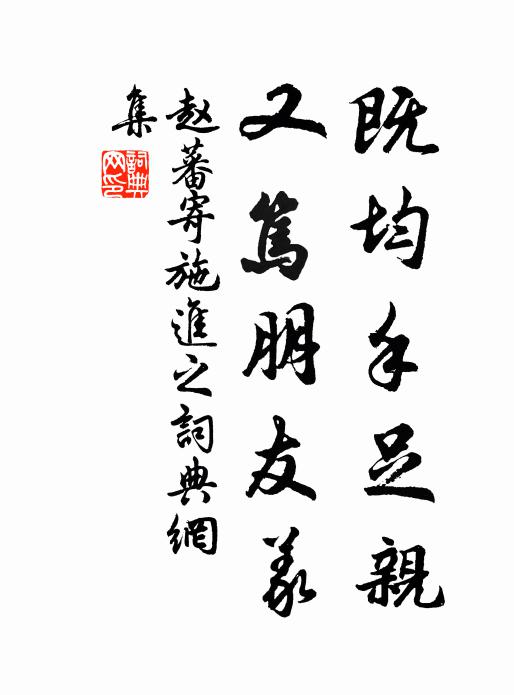 既均手足親
又篤朋友義
赵蕃寄施進之詞典網
集
詞典
网印